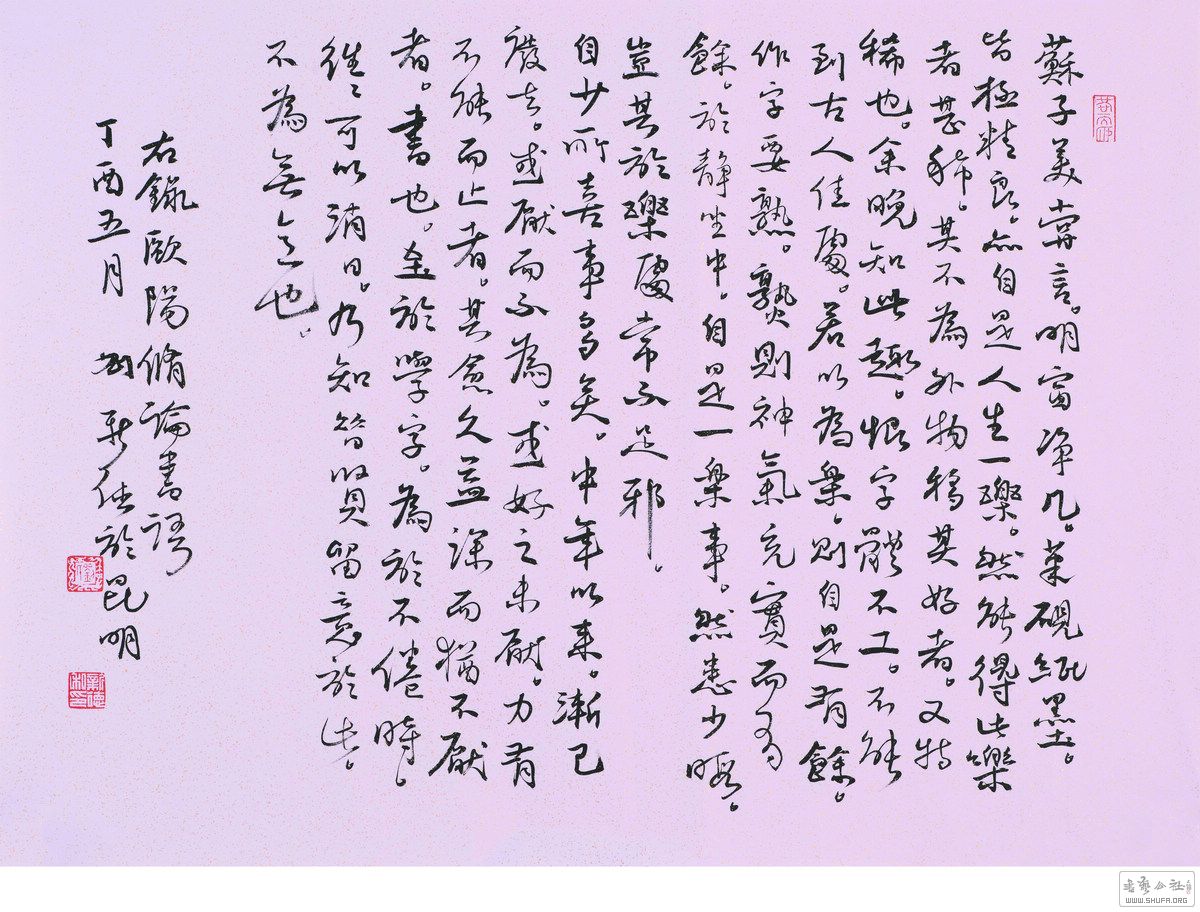 蘇子美嘗言。明窗净几。筆硯紙墨。
皆極精良。亦自是人生一樂。然能得此樂
者甚稀。其不為外物移其好者。又特
稀也。余晚知此趣。恨字體不工。不能
到古人佳處。若以為樂。則自是有餘。
作字要熟。熟則神氣完實而有
餘。於靜坐中。自是一樂事。然患少暇。
豈其於樂處常不足邪。
自少所喜事多矣。中年以來。漸已
廢去。或厭而不為。或好之未厭。力有
不能而止者。其愈久益深而猶不厭
者。書也。至於學字。為於不倦時。
往往可以消日。乃知昔賢留意於此。
不為無意也。
右錄歐陽脩論書語
丁酉五月 於昆明
書藝公社
WWW.SHUFA.ORG